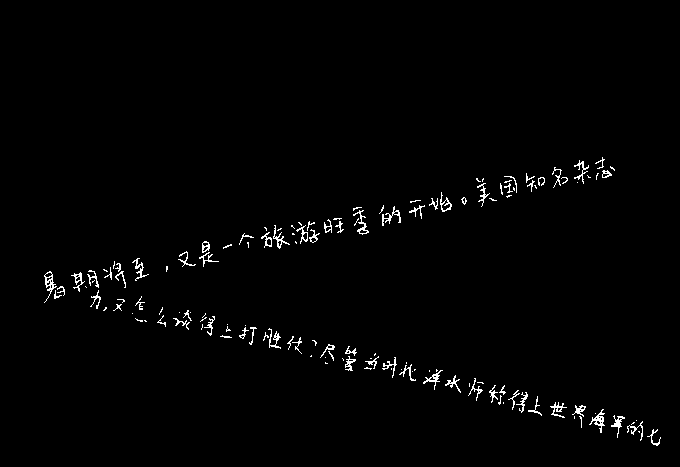 暑期将至，又是一个旅游旺季的开始。美国知名杂志
力，又怎么谈得上打胜仗？尽管当时北洋水师称得上世界海军的七